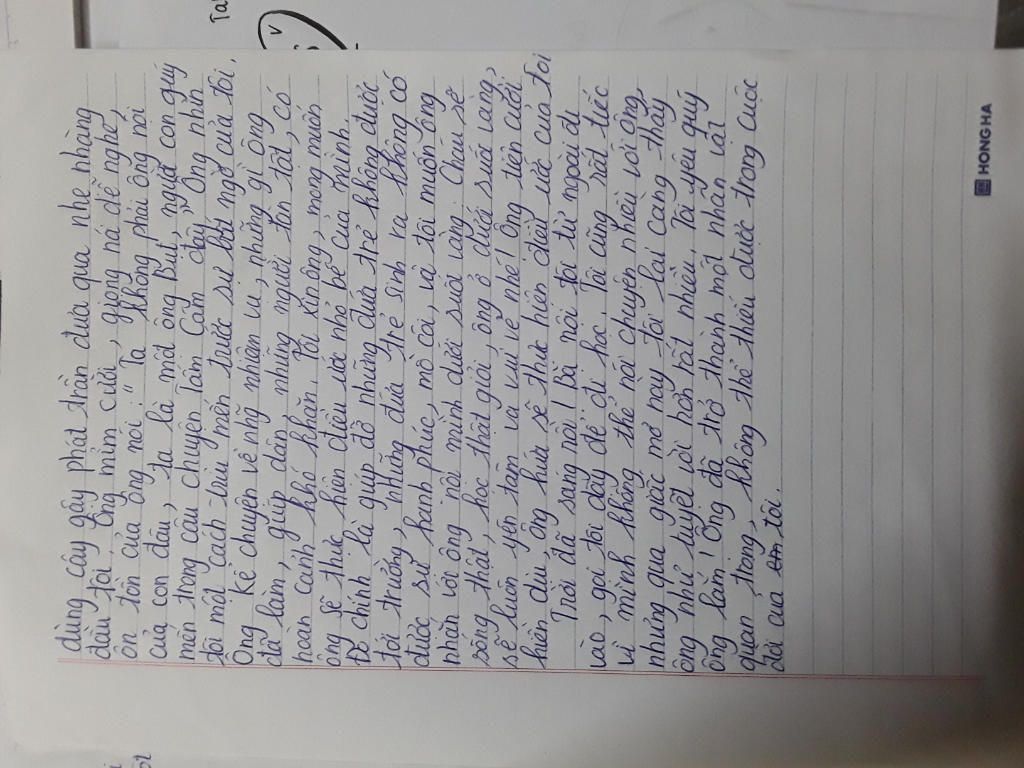 dùng cây gậy phát thần đưa qua nhẹ nhàng
đầu tôi. Ông mỉm cười, giọng nói dễ nghe,
ôn tồn của ông nói: "Ta không phải ông nội
của con đâu, ta là một ông Bụt, người con quý
mến trong câu chuyện Tấm Cám đây". Ông nhìn
tôi một cách trìu mến trước sự bất ngờ của tôi.
Ông kể chuyện về những nhiệm vụ, những gì ông
đã làm, giúp dân những người tàn tật, có
hoàn cảnh khó khăn. Tôi xin ông, mong muốn
ông sẽ thực hiện điều ước nhỏ bé của mình.
Đó chính là giúp đỡ những đứa trẻ không được
tới trường, những đứa trẻ sinh ra không có
được sự hạnh phúc, mồ côi, và tôi muốn ông
nhắn với ông nội mình dưới suối vàng: "Cháu sẽ
sống thật, học thật giỏi, ông ở dưới suối vàng,
sẽ luôn yên tâm và vui vẻ nhé! Ông tiên cười
hiền dịu, ông hứa sẽ thực hiện điều ước của tôi
Trời đã sáng rồi! Bà nội tôi từ ngoài đi
vào, gọi tôi dậy để đi học. Tôi cũng rất tiếc
vì mình không thể nói chuyện nhiều với ông,
nhưng qua giấc mơ này tôi lại càng thấy
ông như tuyệt vời hơn rất nhiều. Tôi yêu quý
ông lắm! Ông đã trở thành một nhân vật
quan trọng, không thể thiếu được trong cuộc
đời của tôi.
HONG HA
Ta